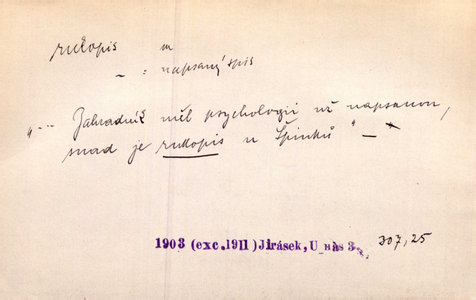 rukopis m
– = napsaný spis
„--- Zahradník měl psychologii už napsanou,
snad je rukopis u Špinků" – *
1903 (exc.1911) Jirásek, U nás 3., 307,25